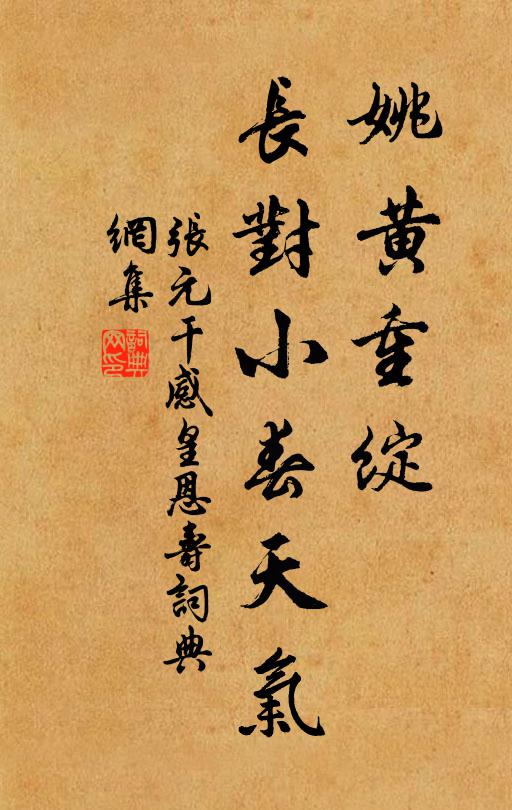 姚黄重綻
長對小春天氣
張元干感皇恩壽詞典
網集
詞典
网印